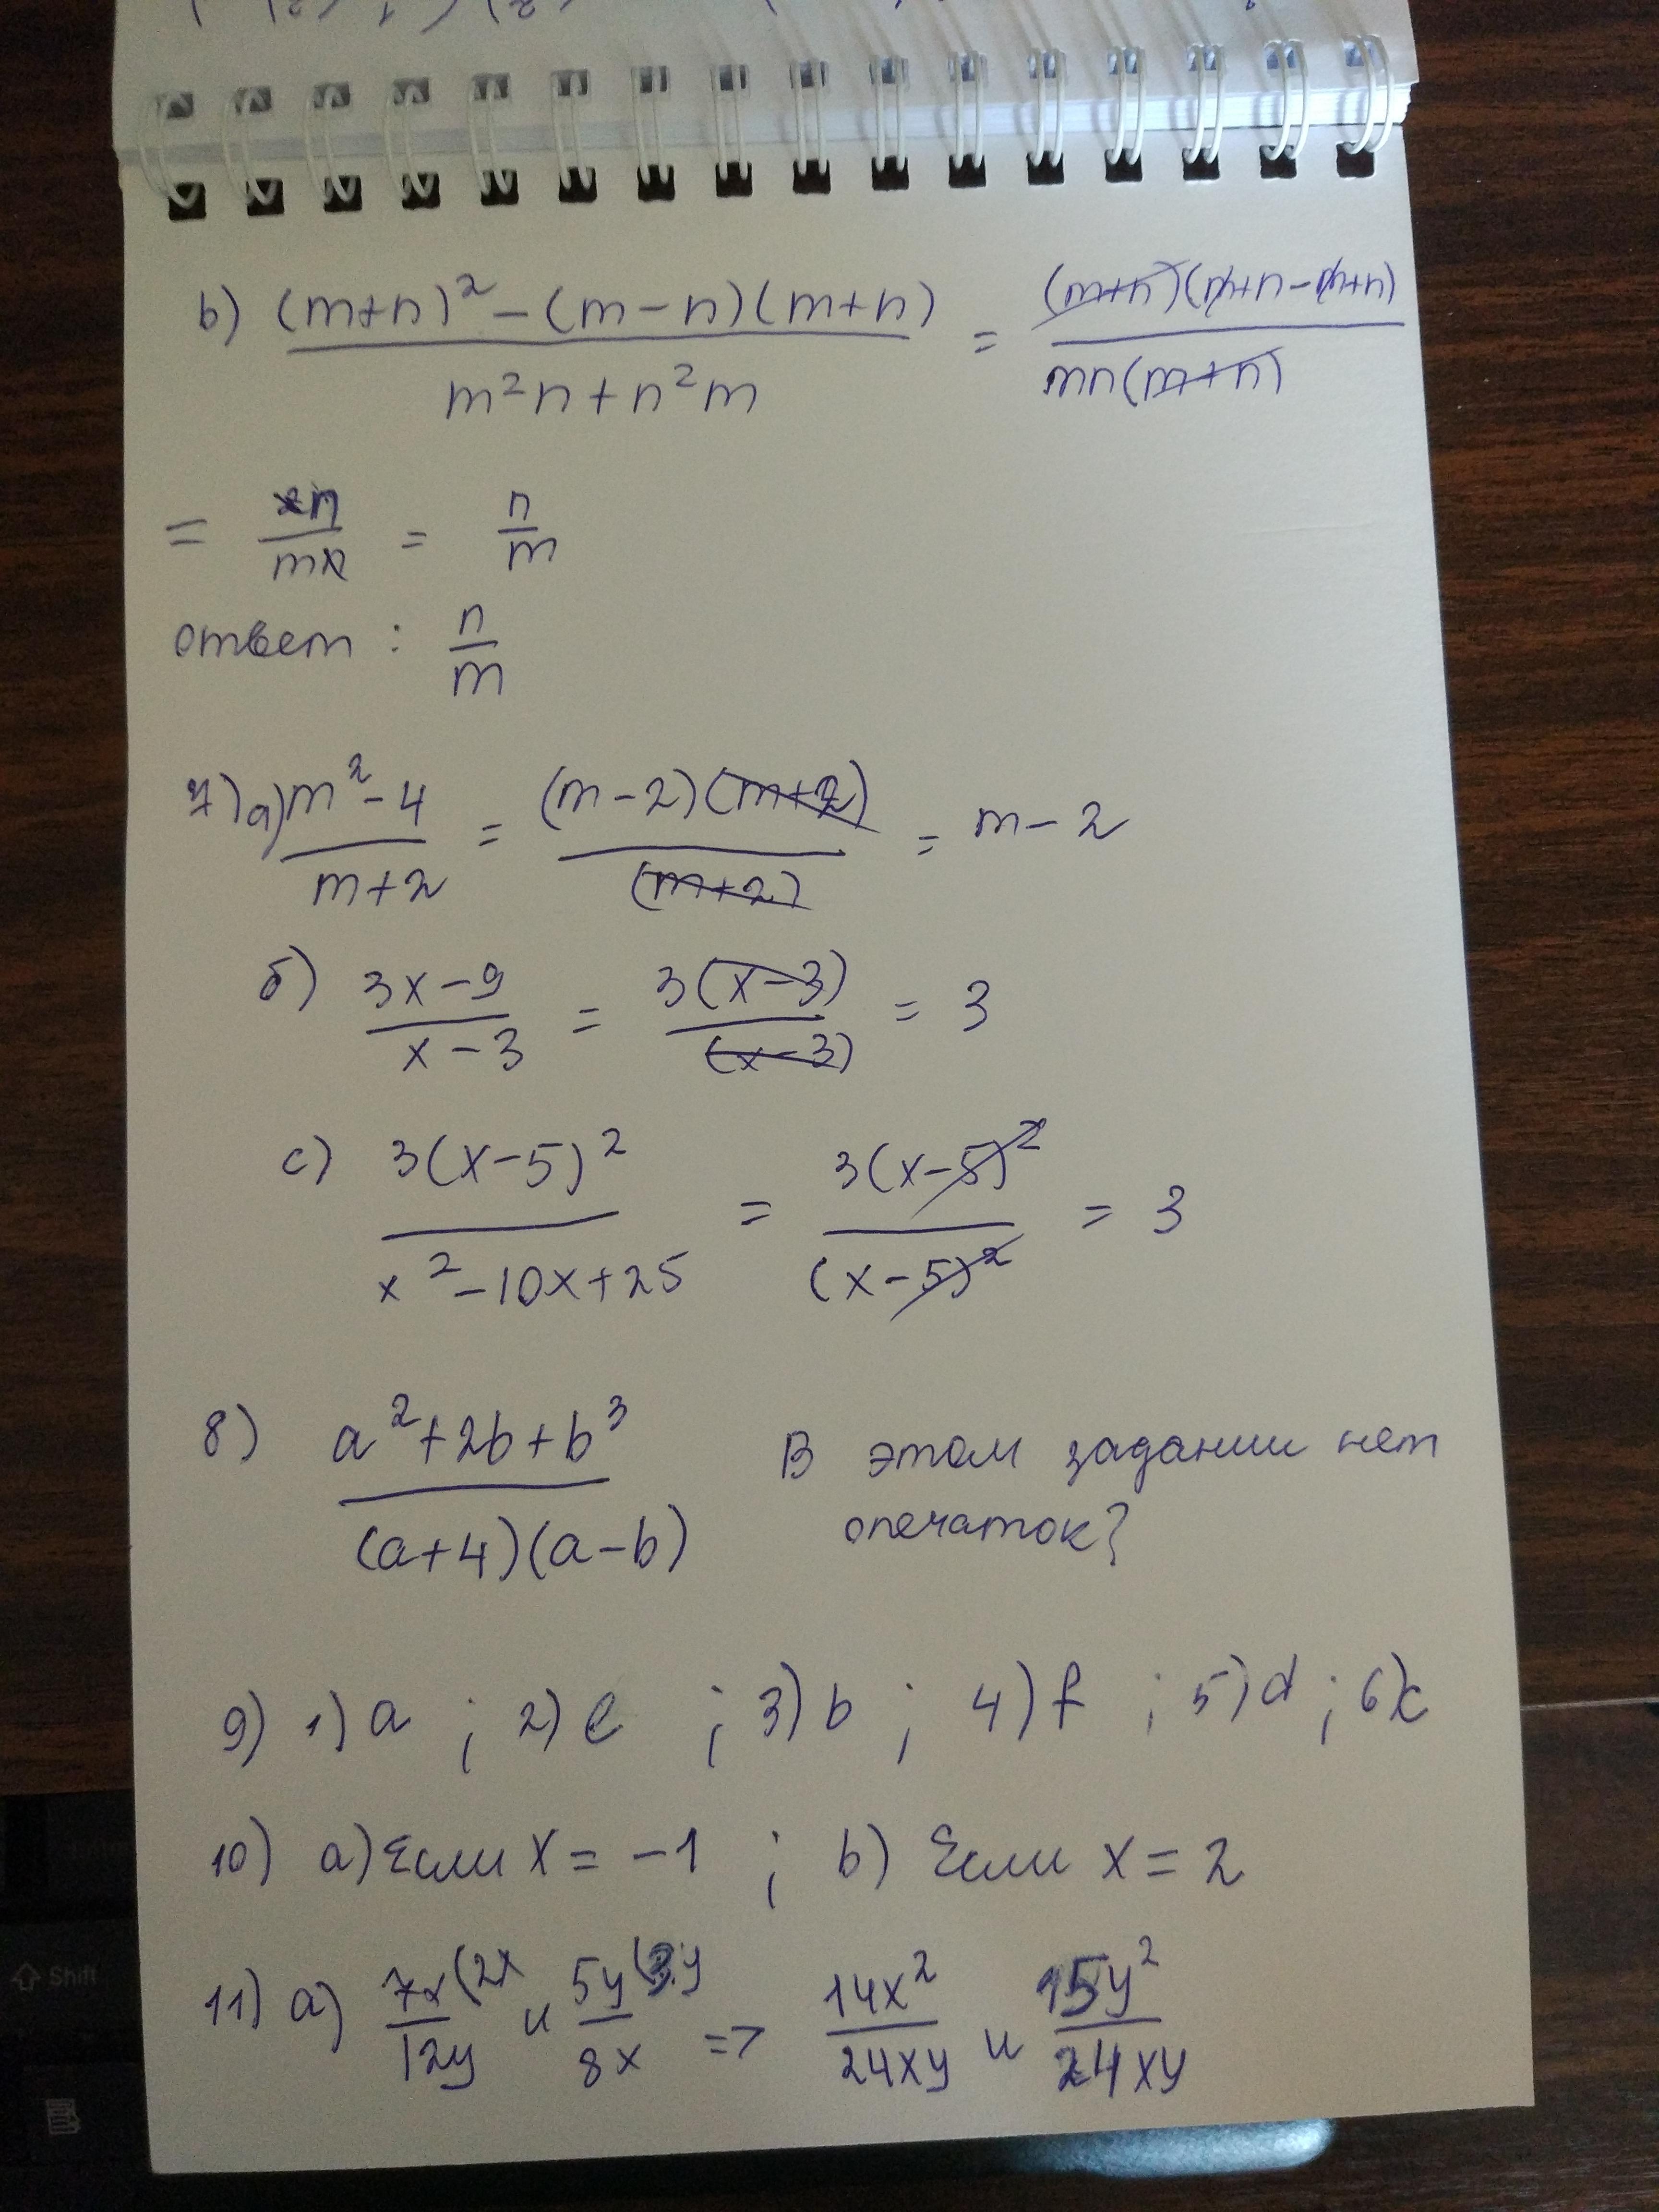 b) ((m+n)² − (m−n)(m+n))/(m²n + n²m) = ((m+n)(m+n−m+n))/(mn(m+n))
= n/mn = n/m
ответ : n/m
7) a) (m² − 4)/(m+2) = ((m−2)(m+2))/((m+2)) = m − 2
б) (3x−9)/(x−3) = (3(x−3))/((x−3)) = 3
c) (3(x−5)²)/(x² − 10x + 25) = (3(x−5)²)/((x−5)²) = 3
8) (a² + 2b + b³)/((a+4)(a−b)) В этом задании нет
опечаток?
9) 1) a ; 2) e ; 3) b ; 4) f ; 5) d ; 6) c
10) a) Если x = −1 ; b) Если x = 2
11) a) 7x/12y (2x и 5y/8x (3y => 14x²/24xy и 15y²/24xy